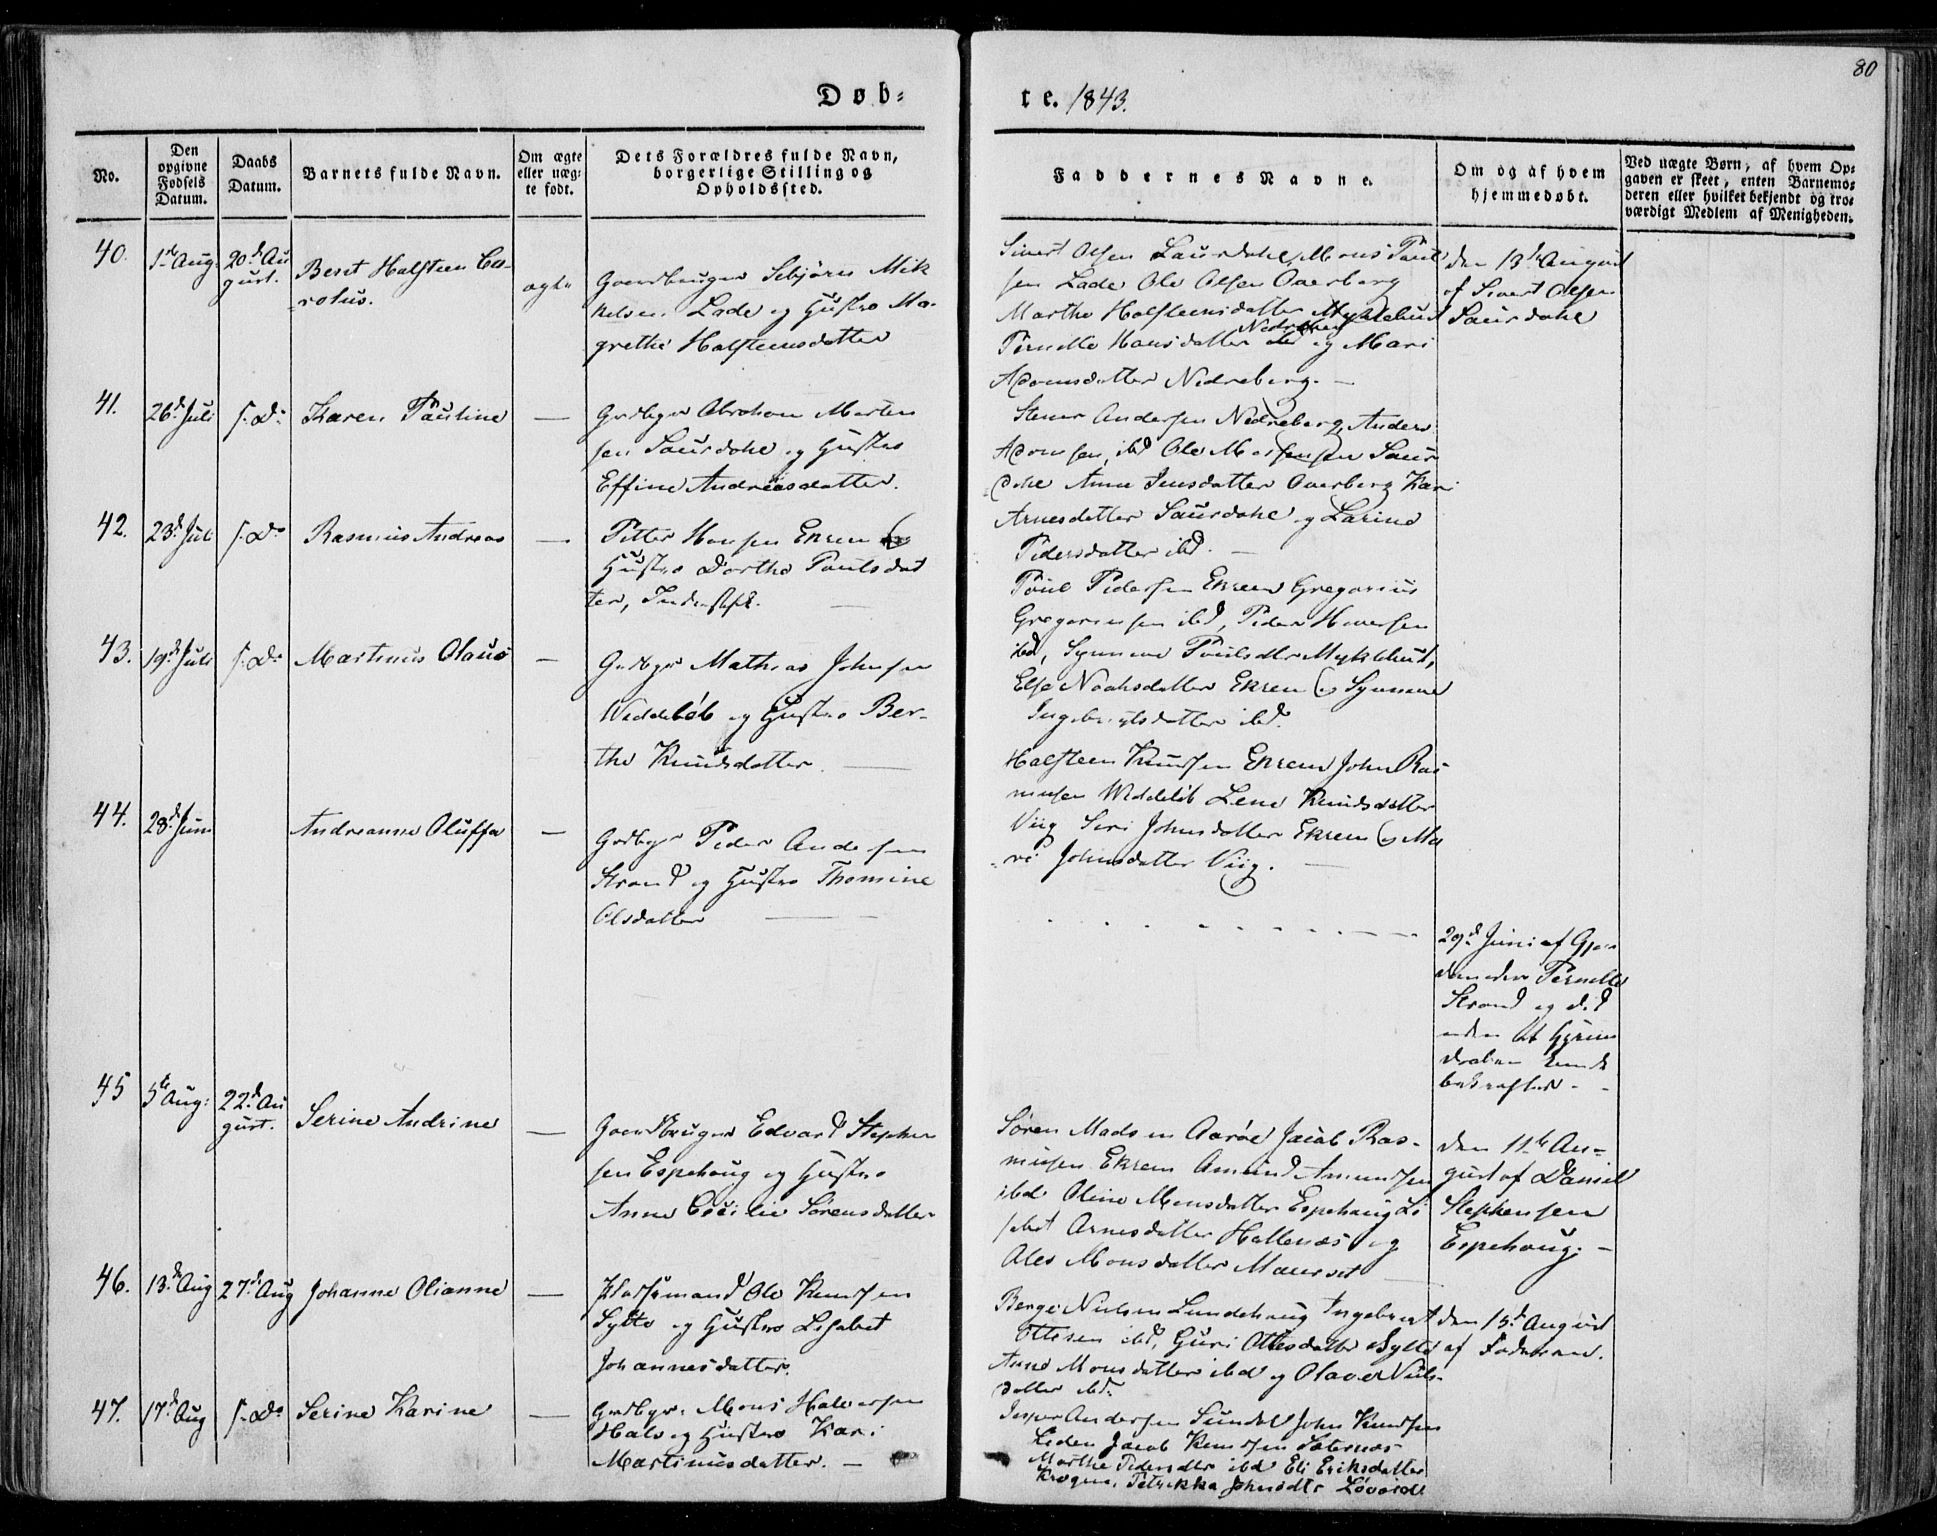 80
Døb-
te. 1843.
No.
Den opgivne Fødsels Datum.
Daabs Datum.
Barnets fulde Navn.
Om ægte eller uæg-
te født.
Dets Forældres fulde Navn,
borgerlige Stilling og
Opholdssted.
Faddernes Navne.
Om og af hvem
hjemmedøbt.
Ved uægte Børn, af hvem Op-
gaven er skeet, enten Barnemo-
deren eller hvilket bekjendt og tro-
værdigt Medlem af Menigheden.
40.
1ste Aug.
20de Au
gust.
Beret Halsteen Ca-
rolus.
ægte
Gaardbruger Sebjørn Mik
kelsen Lade og Hustro Ma-
grethe Halsteensdatter
Sivert Olsen Saurdahl, Mons Paul
sen Lade Ole Olsen Overberg
Marthe Halsteensdatter Myklebust
Pernille Hansdatter Nedreberg og Mari
Adamsdatter Nedreberg. —
den 13de August
af Sivert Olsen
Saurdahl
41.
26de Juli
s. D.
Karen Pauline
—
Grdbgr Abraham Morten
sen Saurdahl og Hustro
Effine Andreasdatter.
Stener Andersen Nedreberg, Anders
Adamsen, ibd Ole Mortensen Saur
dahl Anne Jensdatter Overberg Kari
Arnesdatter Saurdahl og Larine
Pedersdatter ibd. —
42.
23de Juli
s. D.
Rasmus Andreas
—
Petter Hansen Ekrem og
Hustro Dorthe Paulsdat
ter, Inderst
Poul Pedersen Ekrem Gregorius
Gregoriusen ibd, Peder Iversen
ibd, Synneve Poulsdtr Myklebust,
Else Noahsdatter Ekrem og Synneve
Ingebrigtsdatter ibd.
43.
19de Juli
s. D.
Martinus Olaus
—
Grdbgr Mathias Johnsen
Weddeløb og Hustro Ber-
the Knudsdatter. —
Halsteen Knudsen Ekrem John Ras
musen Weddeløb Lene Knudsdatter
Viig Siri Johnsdatter Ekrem og Ma
ri Johnsdatter Viig. —
44.
28de Juni
Andreanna Oluffa
—
Grdbgr Peder Andersen
Strand og Hustro Thomine
Olsdatter —
29de Juni af Gjor
demoder Pernille
Strand og død
inden
daaben kunde
bekræftes. -
45
5te Aug:
22de Au
gust.
Serine Andrine
—
Gaardbruger Edvard Stephen
sen Espehoug og Hustro
Anne Cecilie Sørensdatter
Søren Madsen Aarøe Jacob Ras-
musen Ekrem Amund Amundsen
ibd Oline Monsdatter Espehoug Li
sebet Arnesdatter Hallenæs og
Ales Monsdatter Maurset
den 11te Au-
gust af Daniel
Stephensen
Espehoug. —
46.
13de Aug
27de Aug
Johanne Olianne
—
Pladsmand Ole Knudsen
Sylte og Hustro Lisabet
Johannesdatter.
Berge Nielsen Lundehoug Ingebrigt
Ottesen ibd, Guri Ottesdatter Sylte
Anne Monsdatter ibd og Olave Niels-
datter ibd.
den 15de August
af Faderen.
47.
17de Aug
s. D.
Serine Karine
—
Grdbgr. Mons Halvorsen
Hals og Hustro Kari
Martinusdatter. —
Jesper Andersen Sundal John Knudsen
Liden Jacob Knudsen Sæternæs
Marthe Pedersdtr ibd Eli Eriksdatter
Krogen, Petrikka Johnsdtr Løvoide